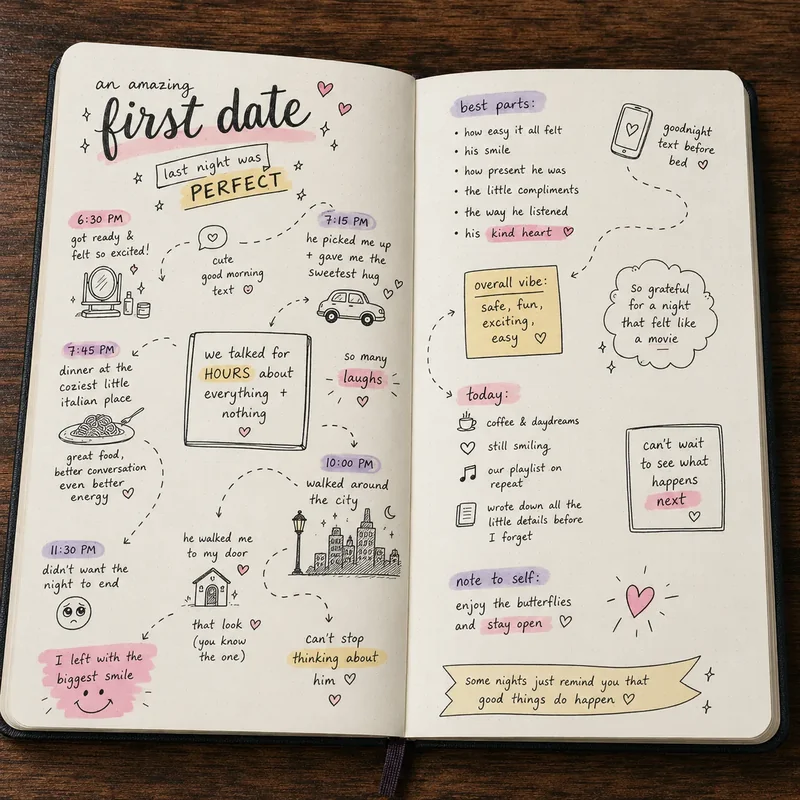 an amazing
first date
last night was
PERFECT
6:30 PM
got ready &
felt so excited!
cute
good morning
text
7:15 PM
he picked me up
+ gave me the
sweetest hug
7:45 PM
dinner at the
coziest little
italian place
great food,
better conversation
even better
energy
we talked for
HOURS about
everything +
nothing
so many
laughs
10:00 PM
walked around
the city
11:30 PM
didn't want the
night to end
he walked me
to my door
that look
(you know
the one)
I left with the
biggest smile
can't stop
thinking about
him
best parts:
• how easy it all felt
• his smile
• how present he was
• the little compliments
• the way he listened
• his kind heart
goodnight
text before
bed
overall vibe:
safe, fun,
exciting,
easy
So grateful
for a night
that felt like
a movie
today:
coffee & daydreams
still smiling
our playlist on
repeat
wrote down all the
little details before
I forget
can't wait
to see what
happens
next
note to self:
enjoy the butterflies
and stay open
some nights just remind you that
good things do happen